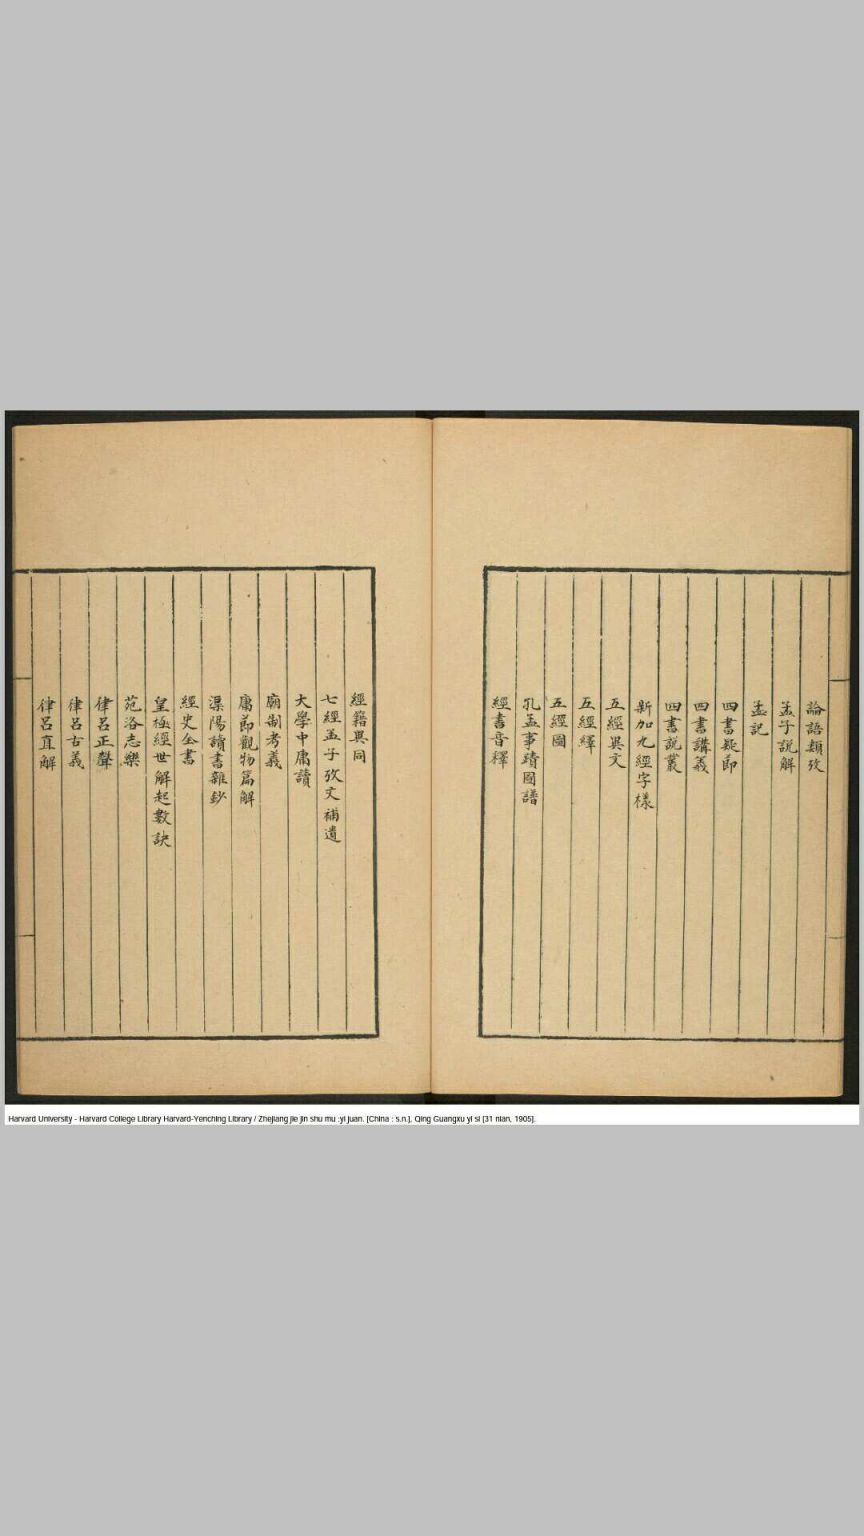 論語類攷
孟子説解
孟記
四書疑節
四書講義
四書説叢
新加九經字樣
五經異文
五經繹
五經圖
孔孟事蹟圖譜
經書音釋
經籍異同
七經孟子攷文補遺
大學中庸讀
廟制考義
庸節觀物篇解
渠陽讀書雜鈔
經史全書
皇極經世解起數訣
苑洛志樂
律呂正聲
律呂古義
律呂直解
Harvard University - Harvard College Library Harvard-Yenching Library / Zhejiang jie jin shu mu :yi juan. [China : s.n.], Qing Guangxu yi si [31 nian, 1905].